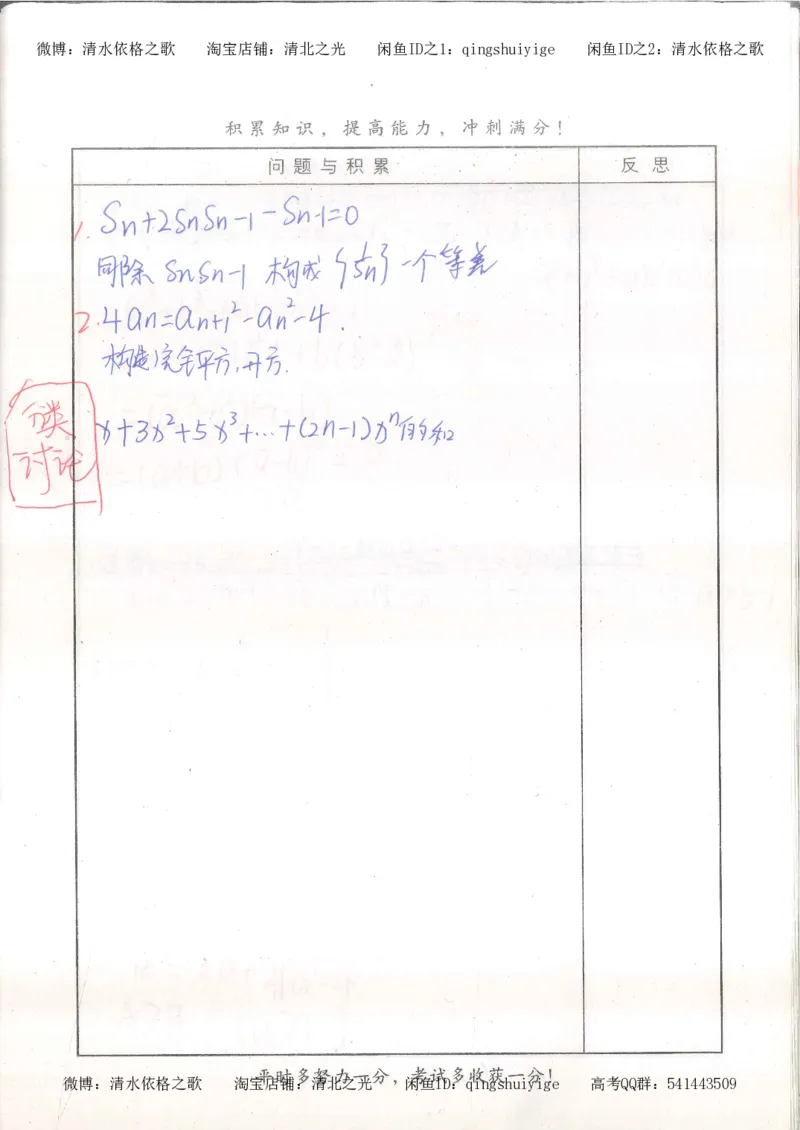 微博：清水依格之歌 淘宝店铺：清北之光 闲鱼ID之1：qingshuiyige 闲鱼ID之2：清水依格之歌
积累知识，提高能力，冲刺满分！
问题与积累 反思
1. Sn+2SnSn-1-Sn-1=0
同除 SnSn-1 构成{1/Sn}一个等差
2. 4an=an+1²-an²-4.
构造完全平方,开方.
分类
讨论
x+3x²+5x³+…+(2n-1)xⁿ的和
平时多努力一分，考试多收获一分！
微博：清水依格之歌 淘宝店铺：清北之光 闲鱼ID：qingshuiyige 高考QQ群：541443509